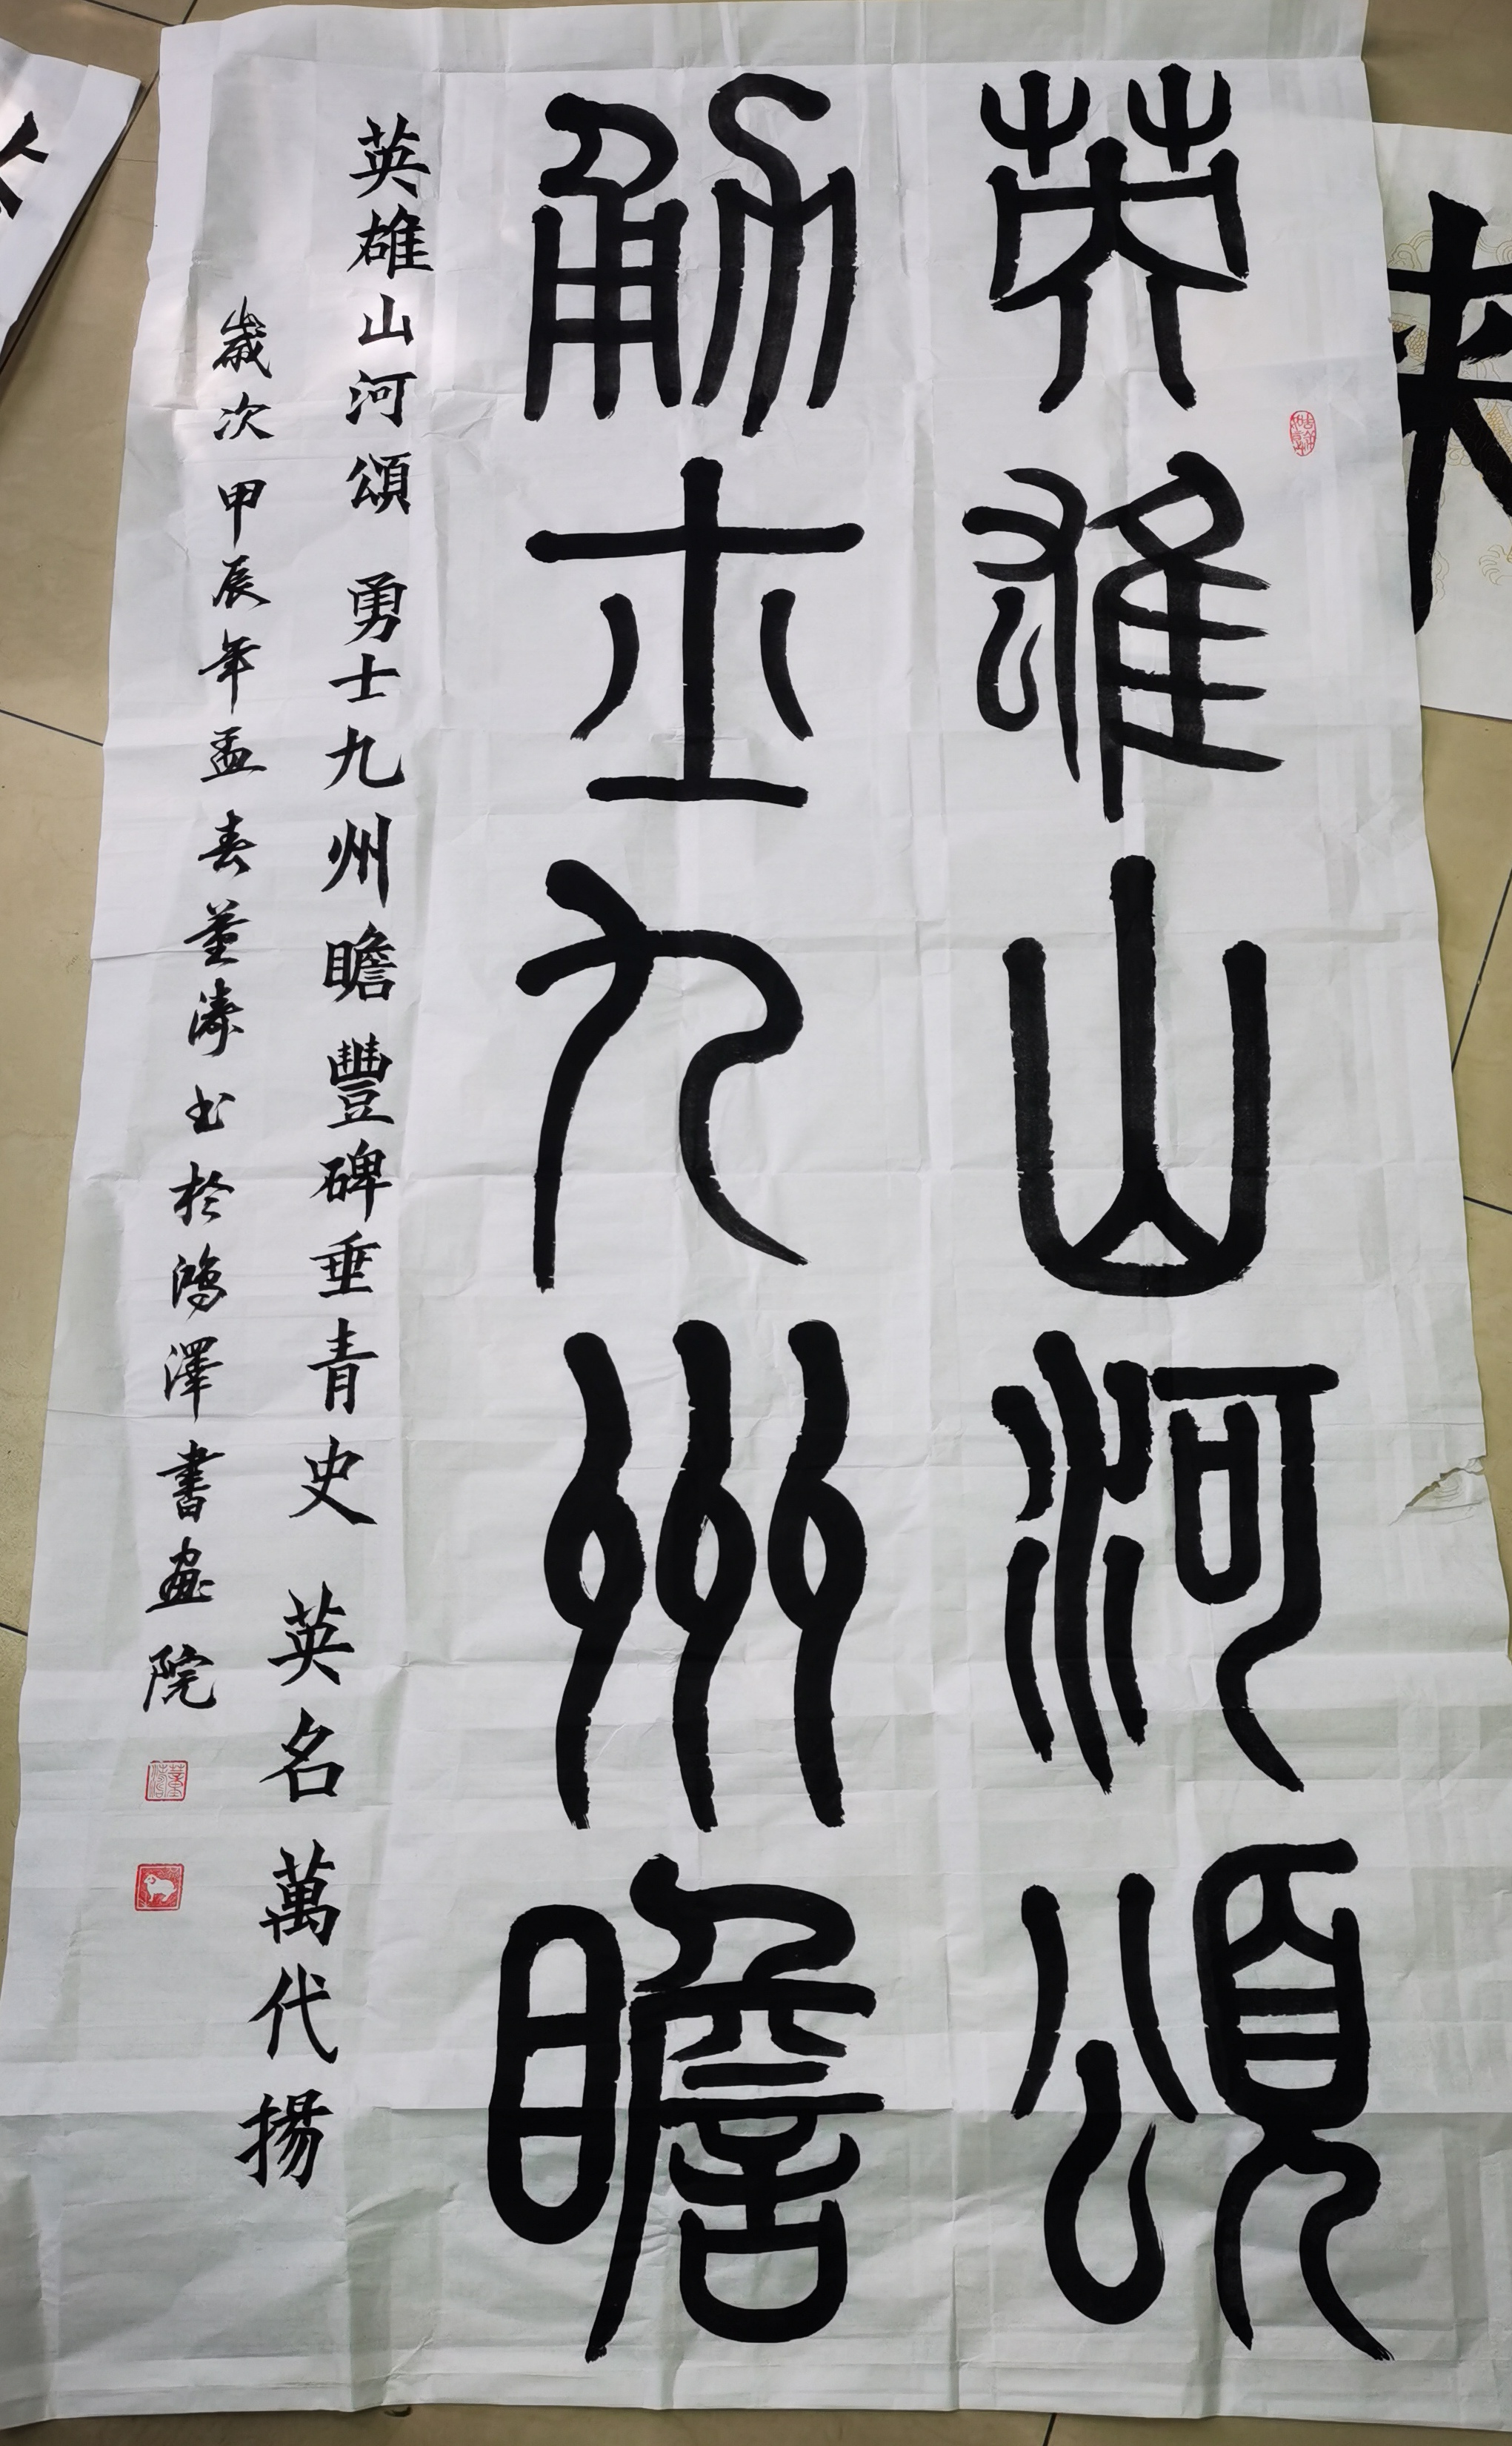 英雄山河頌
勇士九州瞻
英雄山河頌 勇士九州瞻 豐碑垂青史 英名萬代揚
歲次甲辰年孟春董濤书於鴻澤書畫院